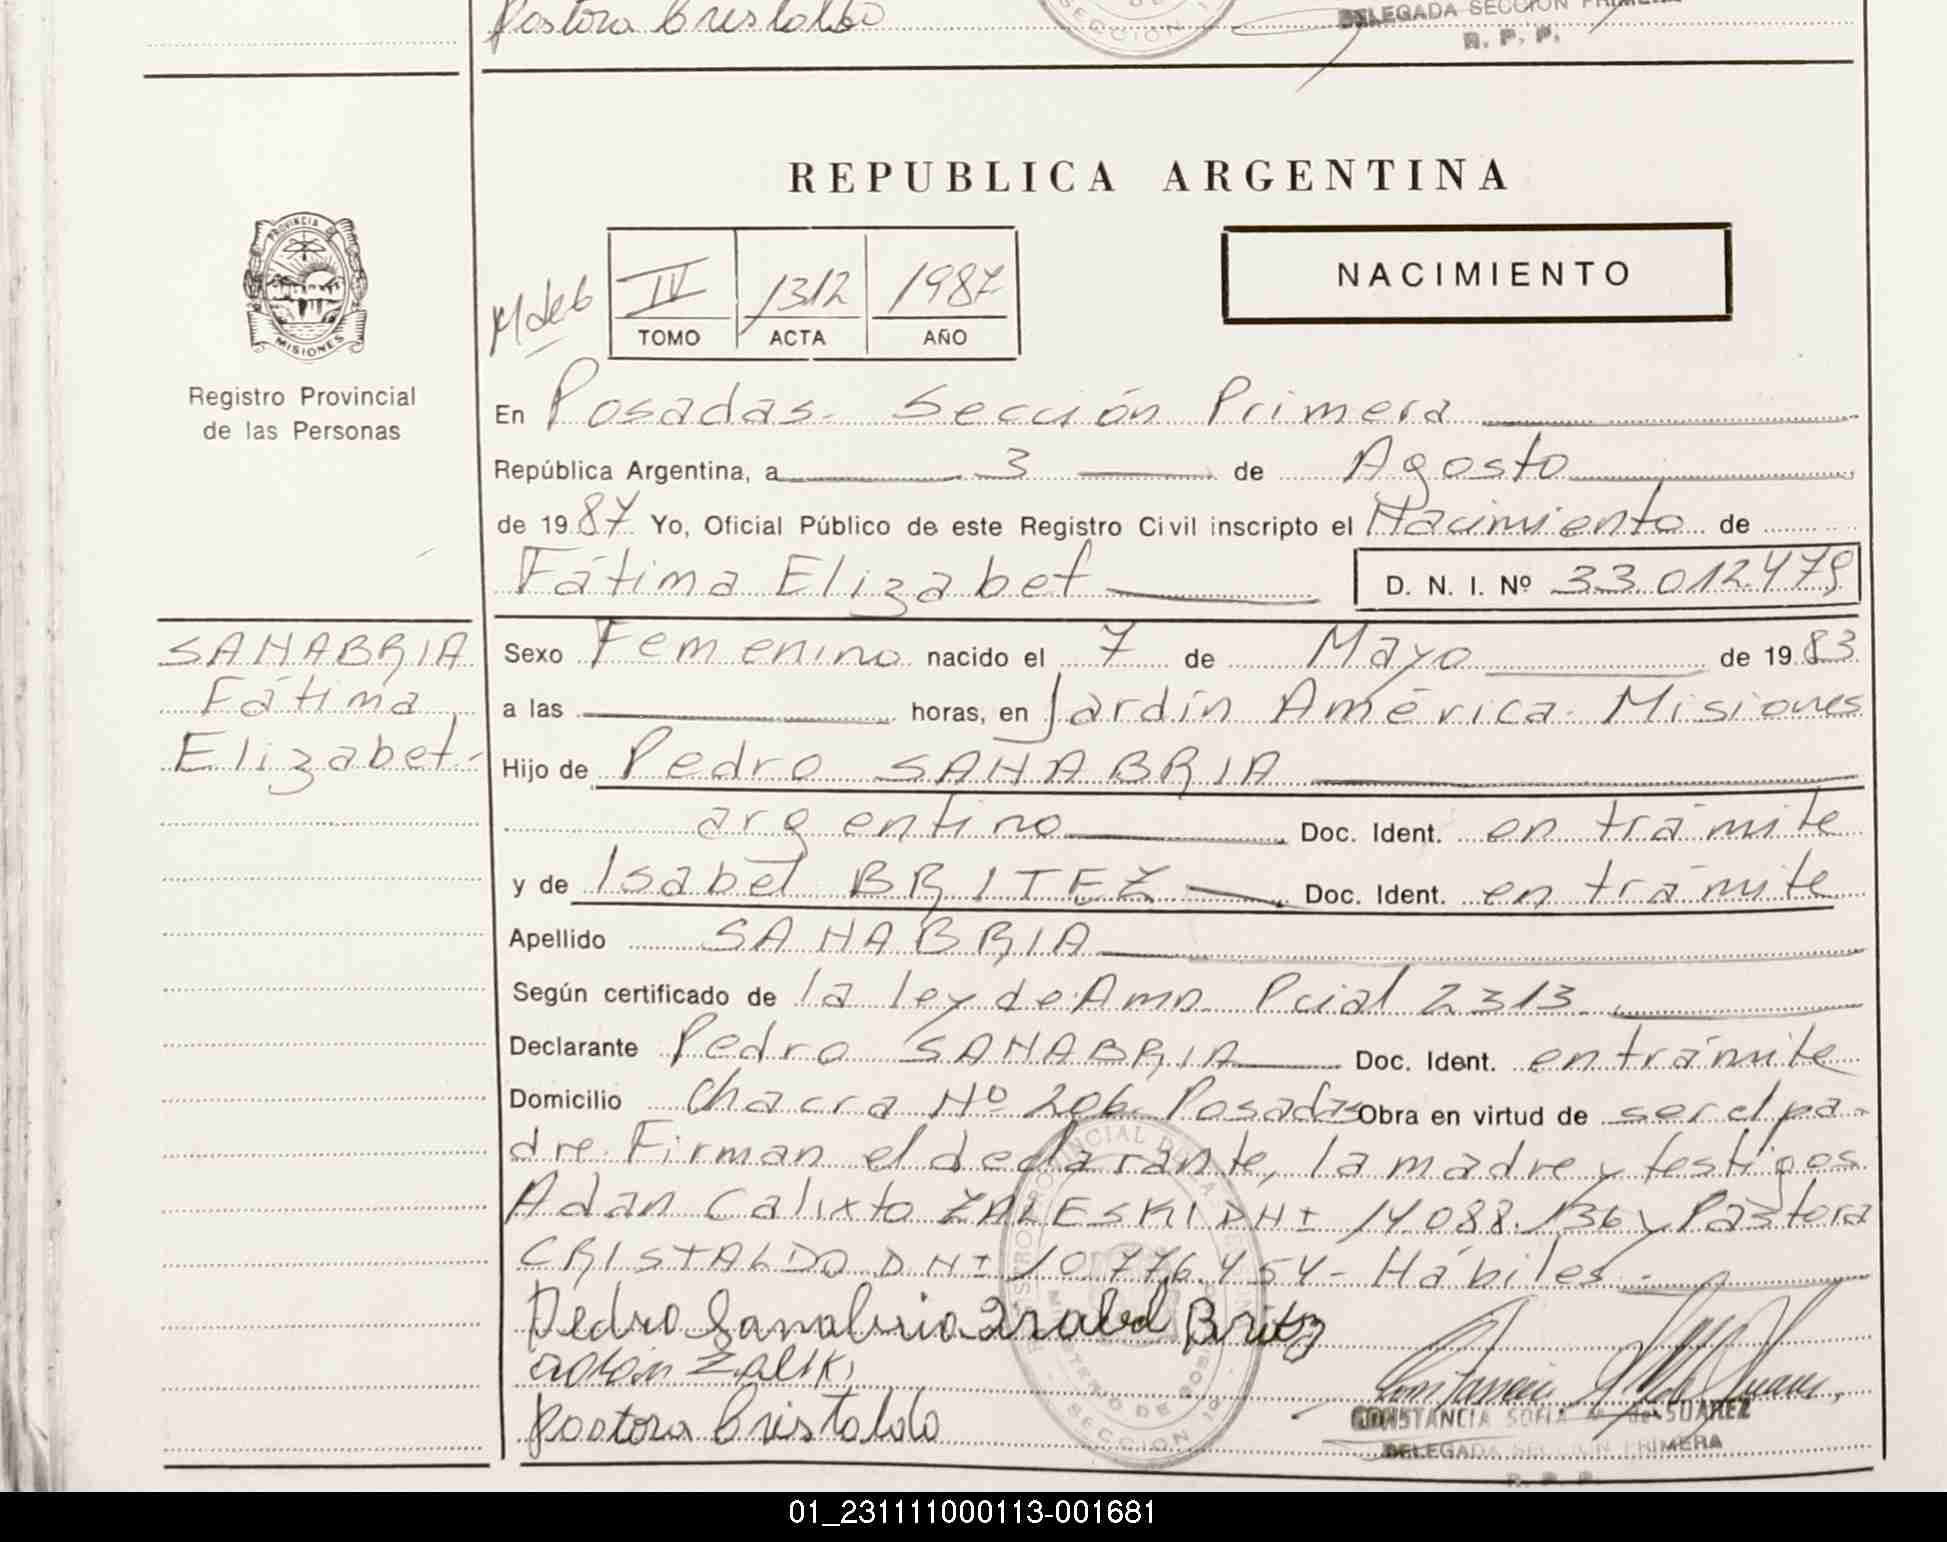 Pastora Cristaldo
SECCION 1
DELEGADA SECCION PRIMERA
R. P. P.
REPUBLICA ARGENTINA
PROVINCIA DE
MISIONES
Registro Provincial
de las Personas
IV 1312 1987
TOMO ACTA AÑO
NACIMIENTO
En Posadas. Sección Primera
República Argentina, a 3 de Agosto
de 1987 Yo, Oficial Público de este Registro Civil inscripto el Nacimiento de
Fátima Elizabet D. N. I. Nº 33.012.479
SANABRIA
Fátima
Elizabet-
Sexo Femenino nacido el 7 de Mayo de 1983
a las horas, en Jardín América. Misiones
Hijo de Pedro SANABRIA
argentino Doc. Ident. en trámite
y de Isabel BRITEZ Doc. Ident. en trámite
Apellido SANABRIA
Según certificado de la ley de Amn. Pcial 2313.
Declarante Pedro SANABRIA Doc. Ident. en trámite
Domicilio Chacra Nº 206. Posadas Obra en virtud de ser el pa-
dre. Firman el declarante, la madre y testigos
Adan Calixto ZALESKI DNI 14.088.136 y Pastora
CRISTALDO DNI 10.776.454- Hábiles.-
Pedro Sanabria Isabel Britz
Pastora Cristaldo
CONSTANCIA SOFIA M. de SUAREZ
DELEGADA SECCION PRIMERA
R. P. P.
MINISTERIO DE GOBIERNO
SECCION 1
01_231111000113-001681